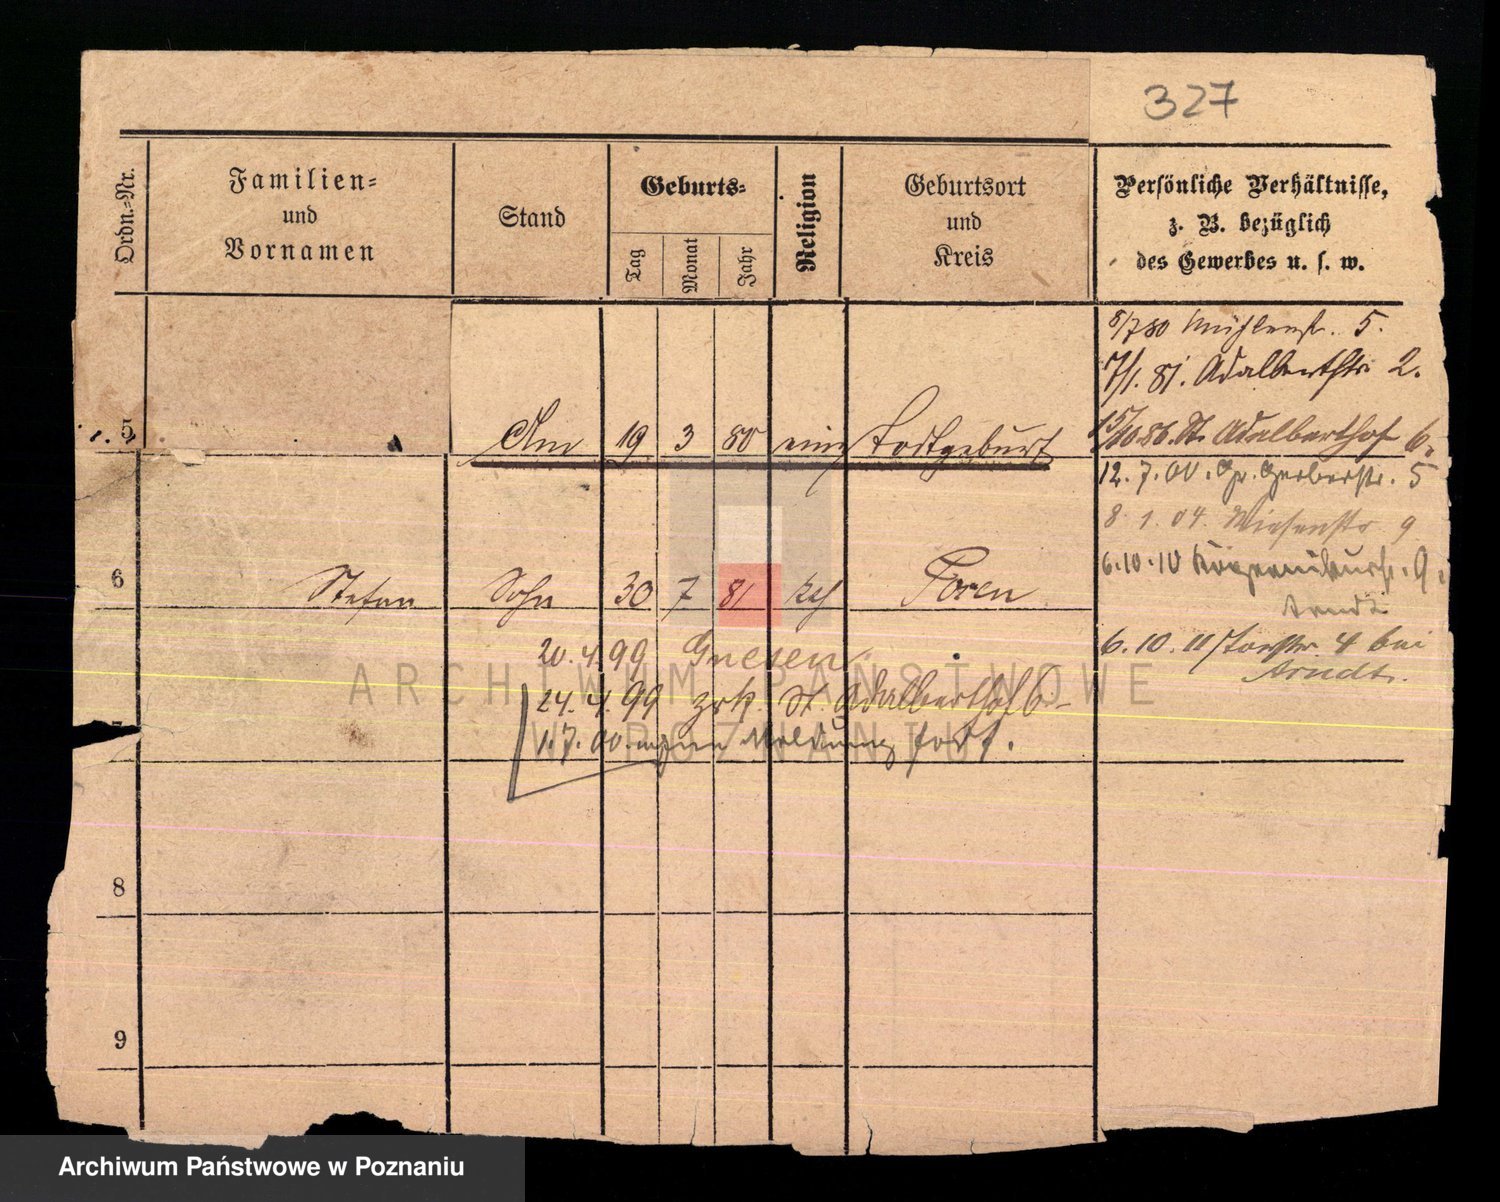 327
Ordn.-Nr.
Familien-
und
Vornamen
Stand
Geburts-
Tag
Monat
Jahr
Religion
Geburtsort
und
Kreis
Persönliche Verhältnisse,
z. B. bezüglich
des Gewerbes u. s. w.
8/7 80 Mühlenstr. 5.
7/1. 81. Adalbertstr. 2.
5
Am 19 3 80 eine Todtgeburt
15/10 86. St. Adalberthof 6.
12. 7. 00. Gr. Gerberstr. 5
8. 1. 04. Wiesenstr. 9
6.10.10 9.
Arndt
6 Stefan Sohn 30 7 81 kth Posen
6. 10. 11 Torstr. 4 bei
Arndt.
20. 4. 99 Gnesen
24. 4. 99 zrk. St. Adalberthof 6
1.7.00. Meldung fort.
8
9
ARCHIWUM PAŃSTWOWE
W POZNANIU
Archiwum Państwowe w Poznaniu